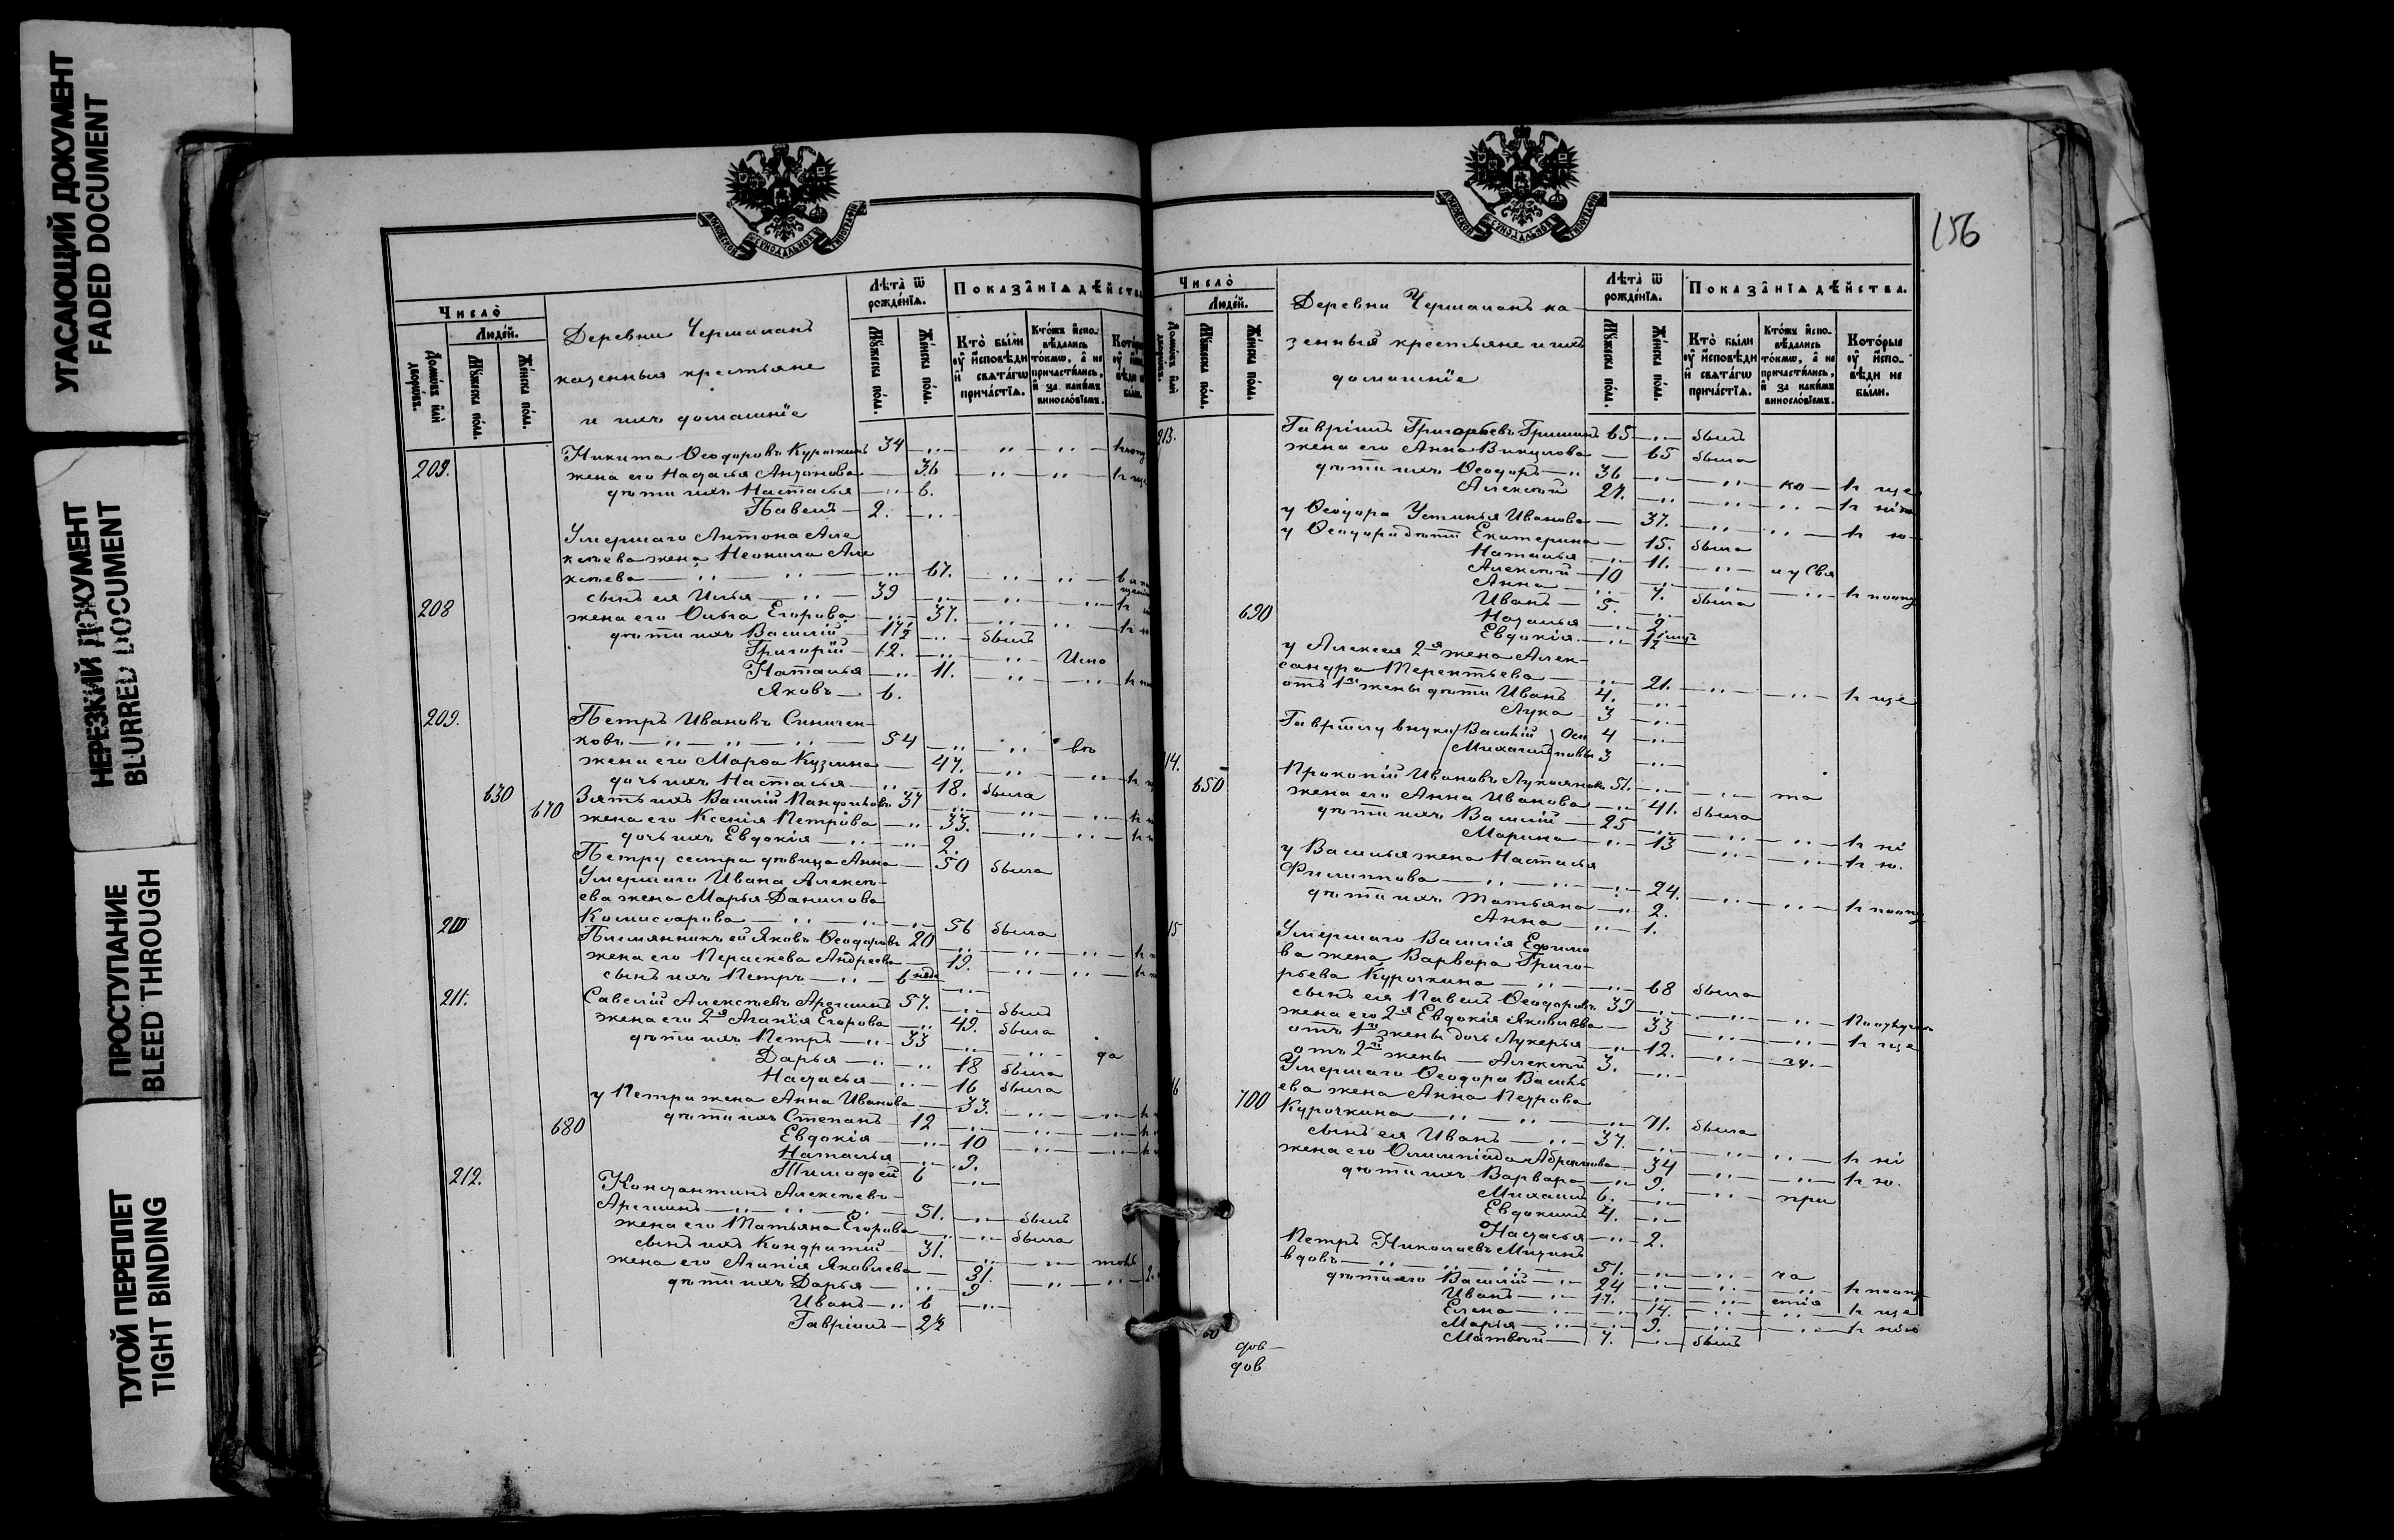 УГАСАЮЩИЙ ДОКУМЕНТ
FADED DOCUMENT
НЕРЕЗКИЙ ДОКУМЕНТ
BLURRED DOCUMENT
ПРОСТУПАНИЕ
BLEED THROUGH
ТУГОЙ ПЕРЕПЛЕТ
TIGHT BINDING
Число̀
Людей.
Домо́въ и҆лѝ дворо́въ.
Мꙋ́жеска по́лꙋ.
Же́нска по́лꙋ.
Деревни Чермаланъ
казенныя крестьяне
и ихъ домашніе
Лѣта̀ ѿ рожде́нїѧ.
Мꙋ́жеска по́лꙋ.
Же́нска по́лꙋ.
Показа̑нїѧ дѣ́йства
Кто̀ бы́ли ᲂу҆ и҆сповѣди и҆ свѧта́гѡ прича́стїѧ.
Никита Ѳеодоровъ Курочкинъ 34
209. жена его Наталья Антонова 36
дѣти ихъ Настасья 6.
Павелъ 2.
Умершаго Антона Але
ксѣева жена Неонила Але
ксѣева 67.
сынъ ея Илья 39
208 жена его Ольга Егорова 37.
дѣти ихъ Василій 17½ былъ
Григорій 12. Испо
Наталья 11.
Яковъ 6.
209. Петръ Ивановъ Синичен-
ковъ 54 вѣ
жена его Марѳа Кузмина 47.
дочь ихъ Настасья 18. была
630 Зять ихъ Василій Панфиловъ 37
670 жена его Ксенія Петрова 33.
дочь ихъ Евдокія 2.
Петру сестра дѣвица Анна 50 была
Умершаго Ивана Алексѣ-
ева жена Марья Данилова
210 Комисарова 56 была
Племянникъ ей Яковъ Ѳеодоровъ 20
жена его Пераскева Андреева 19.
сынъ ихъ Петръ 6 нед
211. Савелій Алексѣевъ 57. былъ
жена его 2я Агапія Егорова 49. была
дѣти ихъ Петръ 33 да
Дарья 18 была
Наталья 16 была
у Петра жена Анна Иванова 33.
680 дѣти ихъ Степанъ 12
Евдокія 10
Наталья 9.
Тимофей 6
212. Константинъ Алексѣевъ
51. былъ
жена его Татьяна Егорова была
сынъ ихъ Кондратій 31.
жена его Агапія Яковлева 31.
дѣти ихъ Дарья 9
Иванъ 6
Гавріилъ
156
Число̀
Людей.
Домо́въ и҆лѝ дворо́въ.
Мꙋ́жеска по́лꙋ.
Же́нска по́лꙋ.
Деревни Чермаланъ ка-
зенныя крестьяне и ихъ
домашніе
Лѣта̀ ѿ рожде́нїѧ.
Мꙋ́жеска по́лꙋ.
Же́нска по́лꙋ.
Показа̑нїѧ дѣ́йства.
Кто̀ бы́ли ᲂу҆ и҆сповѣди и҆ свѧта́гѡ прича́стїѧ.
Кто́жъ и҆спо-вѣдались то́кмѡ, а҆ не причасти́лись, и҆ за каки́мъ винослові́емъ.
Кото́рые ᲂу҆ и҆спо-вѣди не бы́ли.
213. Гавріилъ Григорьевъ Гришинъ 65 былъ
жена его Анна Викулова 65 была
дѣти ихъ Ѳеодоръ 36
Алексѣй 27.
у Ѳеодора Устинья Иванова 37.
у Ѳеодора дѣти Екатерина 15. была
Наталья 11.
Алексѣй 10 и у Свя
Анна 7. была
690 Иванъ 5.
Наталья 2.
Евдокія
у Алексѣя 2я жена Алек-
сандра Терентьева 21.
отъ 1й жены дѣти Иванъ 4.
Лука 3
Гаврiилу внуки Василій 4
Михаилъ 3
14.
650 Прокопій Ивановъ Лукояновъ 51. та
жена его Анна Иванова 41. была
дѣти ихъ Василій 25
Марина 13
у Василья жена Настасья
Филиппова 24.
дѣти ихъ Татьяна 2.
Анна 1.
15 Умершаго Василія Ефимо
ва жена Варвара Григо-
рьева Курочкина 68 была
сынъ ея Павелъ Ѳеодоровъ 39
жена его 2я Евдокія Яковлева 33
отъ 1й жены дочь Лукерья 12.
отъ 2й жены Алексѣй 3.
Умершаго Ѳеодора Василь
16 ева жена Анна Петрова
700 Курочкина 71. была
сынъ ея Иванъ 37.
жена его Олимпіада Абрамова 34
дѣти ихъ Варвара 9. при
Михаилъ 6.
Евдокимъ 4.
Наталья 2.
Петръ Николаевъ
вдовъ 51. ча
дѣти его Василій 24
Иванъ 17. стія
Елена 14.
Марья 9.
Матвѣй 7. былъ